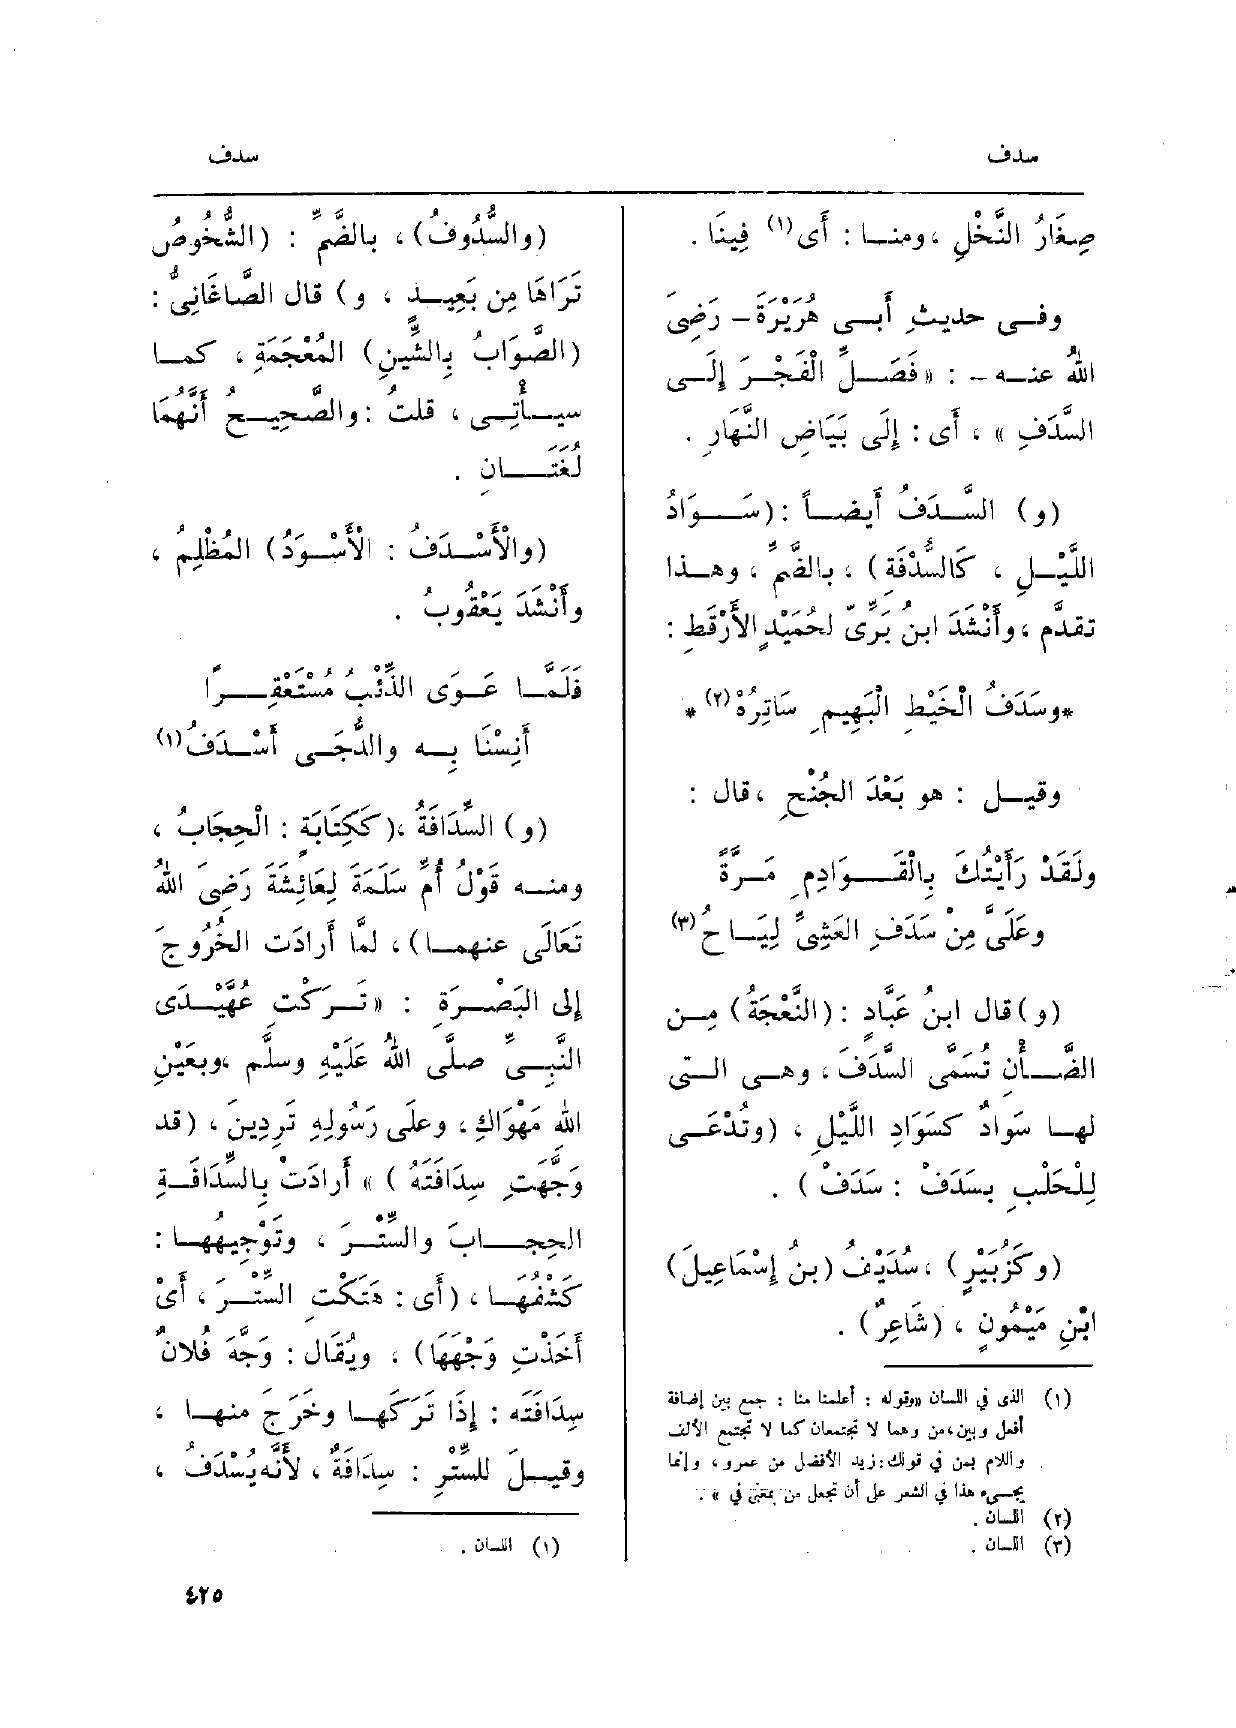 سدف
سدف
صِغَارُ النَّخْلِ ، ومنــا : أَى (١) فِينَا .
وفــى حديثِ أَبــى هُرَيْرَةَ – رَضِىَ
اللهُ عنــه – : « فَصَــلِّ الْفَجْــرَ إِلَــى
السَّدَفِ » ، أَى : إِلَى بَيَاضِ النَّهَارِ .
(و) السَّــدَفُ أَيضــاً : (سَــوَادُ
اللَّيْــلِ ، كَالسُّدْفَةِ) ، بالضَّمِّ ، وهــذا
تقدَّم ، وأَنْشَدَ ابنُ بَرِّىّ لحُمَيْدٍ الأَرْقَطِ :
*وسَدَفُ الْخَيْطِ الْبَهِيمِ سَاتِرُهْ (٢) *
وقيــل : هو بَعْدَ الجُنْحِ ، قال :
ولَقَدْ رَأَيْتُكَ بِالْقَــوَادِمِ مَــرَّةً
وعَلَىَّ مِنْ سَدَفِ العَشِىِّ لِيَــاحُ (٣)
(و) قال ابنُ عَبَّادٍ : (النَّعْجَةُ) مِــن
الضَّــأْنِ تُسَمَّى السَّدَفَ ، وهــى الــتى
لهــا سَوَادٌ كسَوَادِ اللَّيْلِ ، (وتُدْعَــى
لِلْحَلْبِ بسَدَفْ : سَدَفْ ) .
(وكَزُبَيْرٍ) ، سُدَيْفُ (بنُ إِسْمَاعِيلَ)
ابْنِ مَيْمُونٍ ، (شَاعِرٌ) .
(١) الذى فى اللسان «وقوله : أعلمنا منا : جمع بين إضافة
أفعل وبين ،من وهما لا تجتمعان كما لا تجتمع الألف
واللام بمن فى قولك : زيد الأفضل من عمرو ، وإنما
يجىء هذا فى الشعر على أن تجعل من بمعنى فى » .
(٢) اللسان .
(٣) اللسان .
(والسُّدُوفُ) ، بالضَّمِّ : (الشُّخُوصُ
تَرَاهَا مِن بَعِيــدٍ ، و) قال الصَّاغَانِىُّ :
(الصَّوَابُ بِالشِّينِ) المُعْجَمَةِ ، كمــا
سيــأْتِــى ، قلتُ : والصَّحِيــح أَنَّهُمَا
لُغَتَــــانِ .
(والأَسْــدَفُ : الأَسْــوَدُ) المُظْلِمُ ،
وأَنْشَدَ يَعْقُوبُ .
فَلَمَّــا عَــوَى الذِّئْبُ مُسْتَعْقِــرًا
أَنِسْنَا بِــه والدُّجَــى أَسْــدَفُ (١)
(و) السِّدَافَةُ ، (كَكِتَابَةٍ : الْحِجَابُ ،
ومنــه قَوْلُ أُمِّ سَلَمَةَ لِعَائِشَةَ رَضِىَ اللهُ
تَعَالَى عنهمــا) ، لمَّا أَرادَت الخُرُوجَ
إِلى البَصْــرَةِ : «تَــرَكْتِ عُهَّيْــدَى
النَّبِــىِّ صلَّى اللهُ عَلَيْهِ وسلَّم ، وبعَيْنِ
اللهِ مَهْوَاكِ ، وعلَى رَسُولِهِ تَرِدِينَ ، (قد
وَجَّهْتِ سِدَافَتَهُ ) » أَرادَتْ بِالسِّدَافَــةِ
الحِجــــابَ والسِّتْــرَ ، وتَوْجِيهُهَــا :
كَشْفُهَــا ، (أَى : هَتَكْتِ السِّتْــرَ ، أَىْ
أَخَذْتِ وَجْهَهَا) ، ويُقَال : وَجَّهَ فُلانٌ
سِدَافَتَه : إِذَا تَرَكَهــا وخَرَجَ منهــا ،
وقيــلَ للسِّتْرِ : سِدَافَةٌ ، لأَنَّه يُسْدَفُ ،
(١) اللسان .
٤٢٥